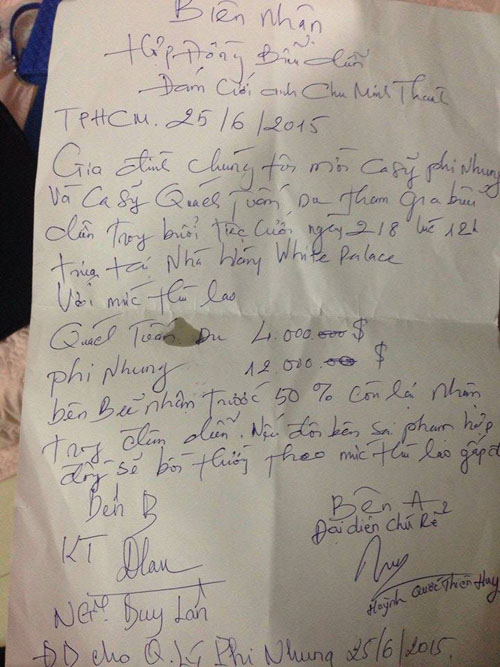 Biên nhận
Hợp Đồng Biểu diễn
Đám Cưới anh Chu Minh
TPHCM. 25/6/2015
Gia đình chúng tôi mời Ca sỹ phi Nhung
Và Ca sỹ Quách Tuấn Du tham gia biểu
diễn trong buổi tiệc Cưới ngày 2/8 lúc 12h
trưa tại Nhà hàng White Palace
Với mức thù lao
Quách Tuấn Du 4.000 $
phi Nhung 12.000 $
bên B sẽ nhận trước 50% còn lại nhận
trong đêm diễn. Nếu đôi bên sai phạm hợp
đồng sẽ bồi thường theo mức thù lao gấp đôi
Bên B
Bên A
Đại diện Chú Rể
KT
NGM. Duy Lân
Huỳnh Quốc Thiên Huy
ĐD cho Q. Lý Phi Nhung 25/6/2015.